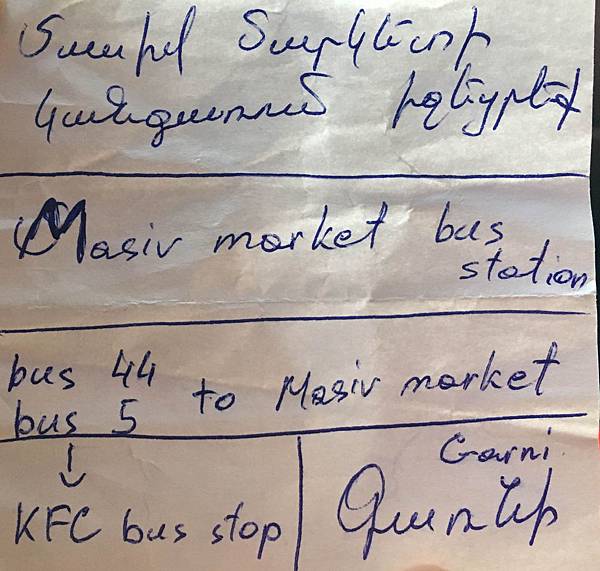 Մասիվ Մարկետի
կանգառում իջեցրեք
Masiv market bus
station
bus 44
bus 5 to Masiv market
↓
KFC bus stop
Garni
Գառնի